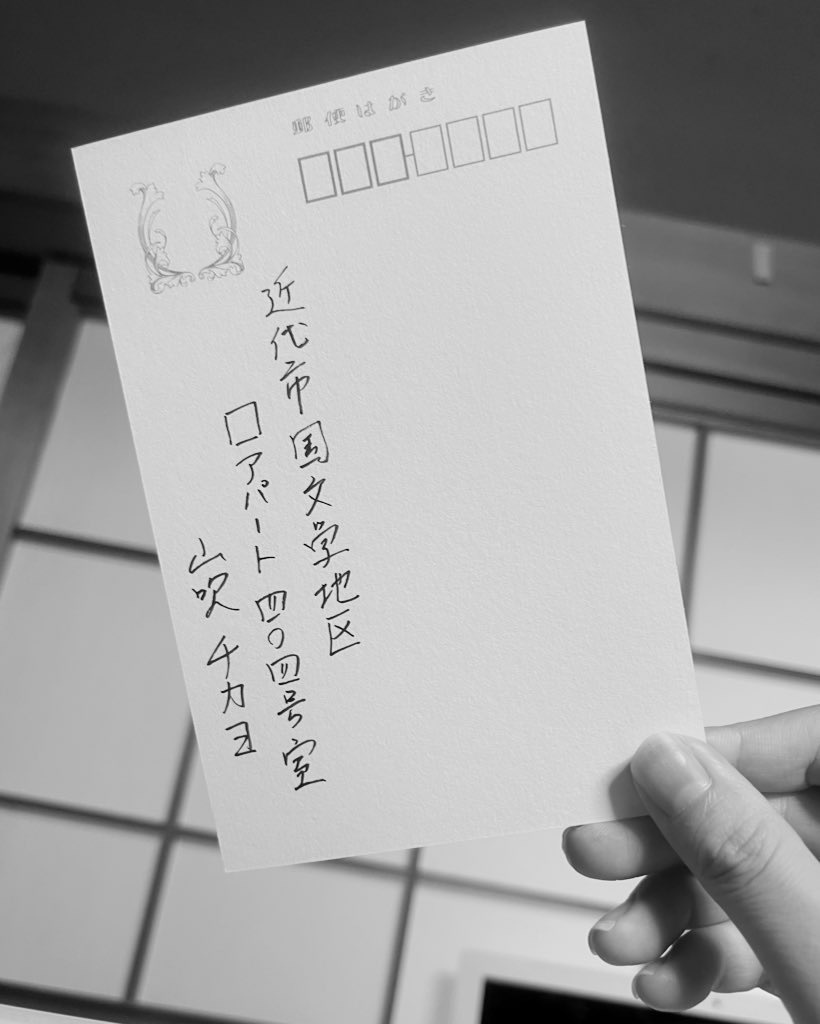 郵便はがき
近代市国文学地区
口アパート四〇四号室
山吹チカヨ